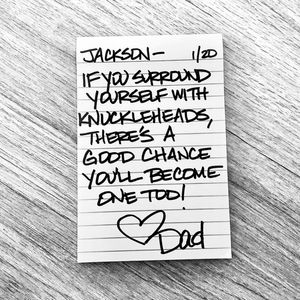 JACKSON— 1/20
IF YOU SURROUND
YOURSELF WITH
KNUCKLEHEADS,
THERE'S A
GOOD CHANCE
YOU'LL BECOME
ONE TOO!
Dad